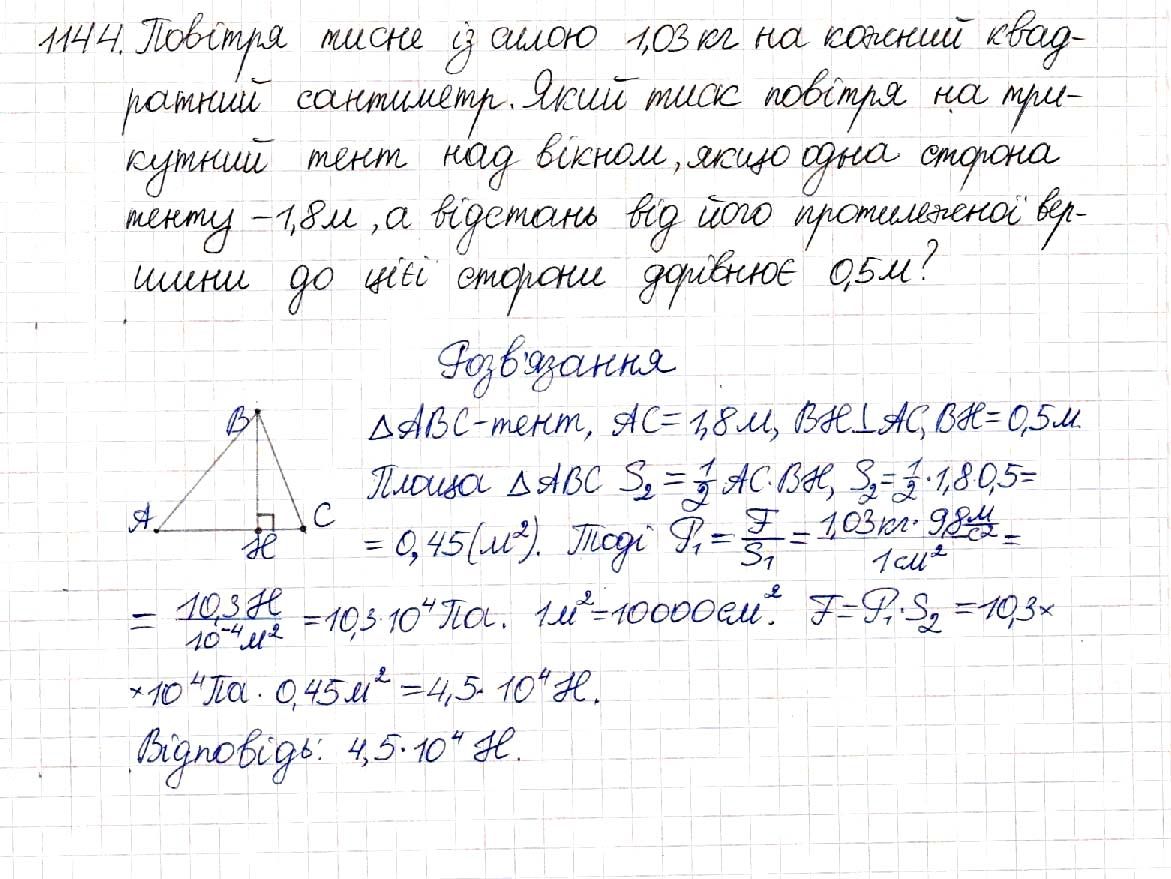 1144. Повітря тисне із силою 1,03 кг на кожний квад-
ратний сантиметр. Який тиск повітря на три-
кутний тент над вікном, якщо одна сторона
тенту – 1,8 м, а відстань від його протилежної вер-
шини до цієї сторони дорівнює 0,5 м?
Розв'язання
△ABC-тент, AC = 1,8 м, BH⊥AC, BH = 0,5 м.
Площа △ABC S₂ = 1/2 AC·BH, S₂ = 1/2 · 1,8 0,5 =
= 0,45 (м²). Тоді P₁ = F/S₁ = 1,03 кг · 9,8 м/с2 / 1 см² =
= 10,3 H / 10⁻⁴ м² = 10,3·10⁴ Па. 1 м² = 10000 см². F = P₁·S₂ = 10,3×
×10⁴ Па · 0,45 м² = 4,5 · 10⁴ H.
Відповідь: 4,5·10⁴ H.
B
A
H
C